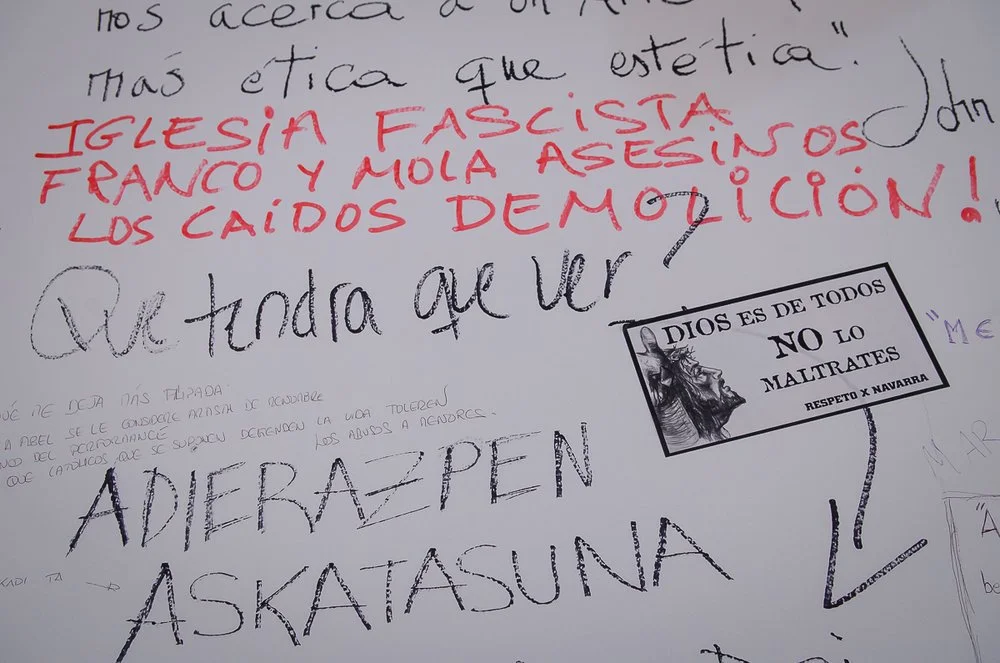 nos acerca a un
más ética que estética".
John
IGLESIA FASCISTA
FRANCO Y MOLA ASESINOS
LOS CAÍDOS DEMOLICIÓN!
Que tendra que ver?
DIOS ES DE TODOS
NO LO
MALTRATES
RESPETO X NAVARRA
"ME
QUÉ ME DEJA MÁS FLIPADA:
A ABEL SE LE CONSIDERE ARTISTA DE RENOMBRE
DEL PERFORMANCE
QUE CATÓLICOS, QUE SE SUPONEN DEFIENDEN LA VIDA TOLEREN
LOS ABUSOS A MENORES.
ADIERAZPEN
ASKATASUNA
TA
MAR
"A
be